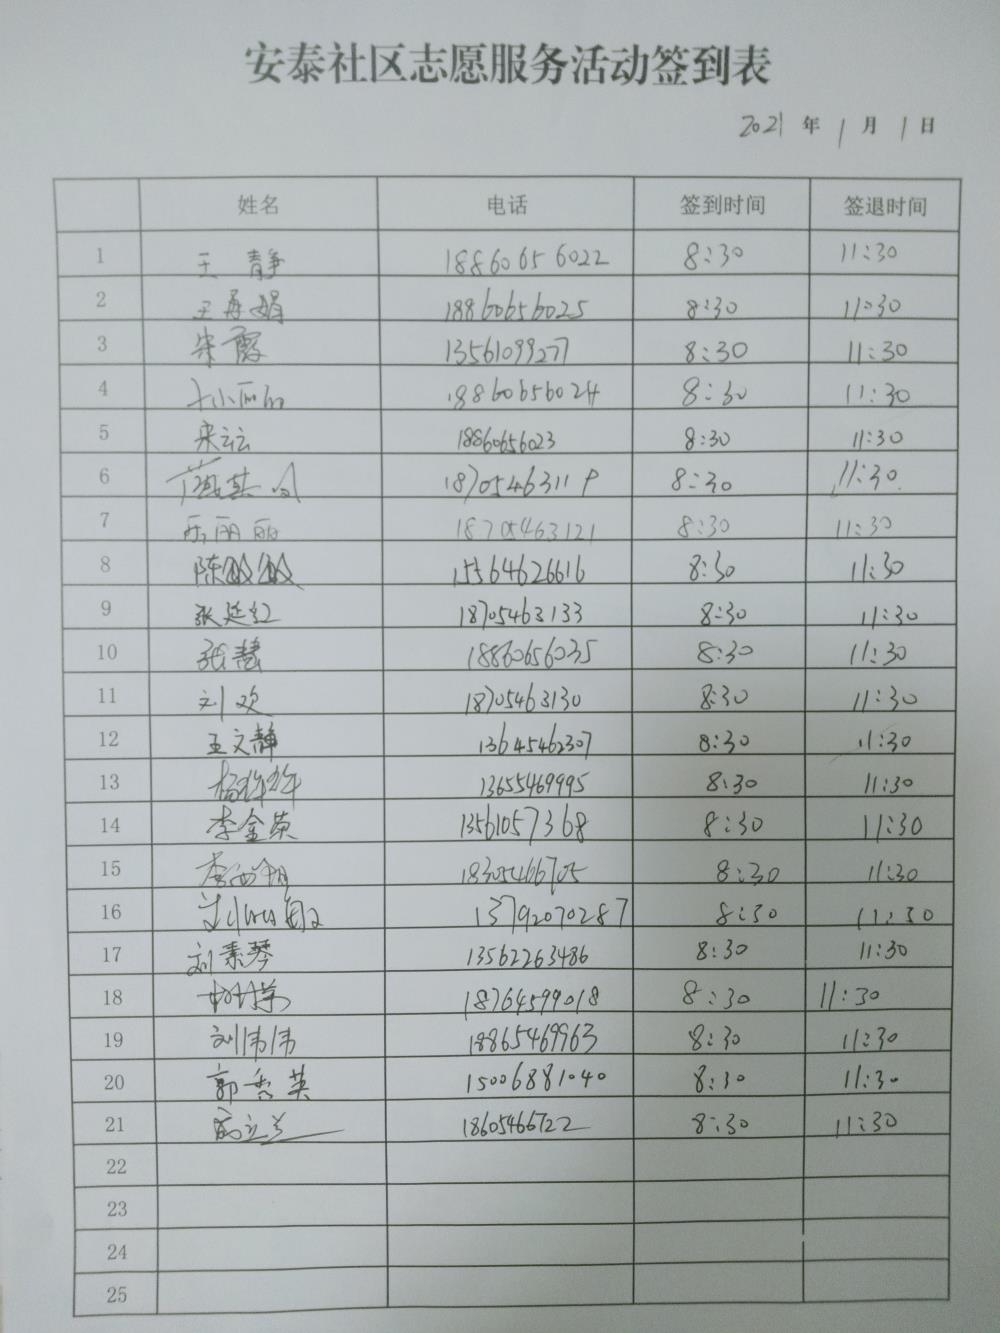 安泰社区志愿服务活动签到表
2021 年 1 月 1 日
姓名 电话 签到时间 签退时间
1 王静 18860656022 8:30 11:30
2 王春娟 18860656025 8:30 11:30
3 宋霞 13561099277 8:30 11:30
4 18860656024 8:30 11:30
5 宋云云 18860656023 8:30 11:30
6 1870546311 8:30 11:30
7 丽丽 18705463121 8:30 11:30
8 陈敏敏 15564626616 8:30 11:30
9 张延红 18705463133 8:30 11:30
10 张慧 18860656035 8:30 11:30
11 刘欢 18705463130 8:30 11:30
12 王文静 13645462307 8:30 11:30
13 杨 13655469995 8:30 11:30
14 李金英 13561057368 8:30 11:30
15 李 18305466705 8:30 11:30
16 13792070287 8:30 11:30
17 刘素琴 13562263486 8:30 11:30
18 18764599018 8:30 11:30
19 刘伟伟 18865469963 8:30 11:30
20 郭秀英 15006881040 8:30 11:30
21 18605466722 8:30 11:30
22
23
24
25